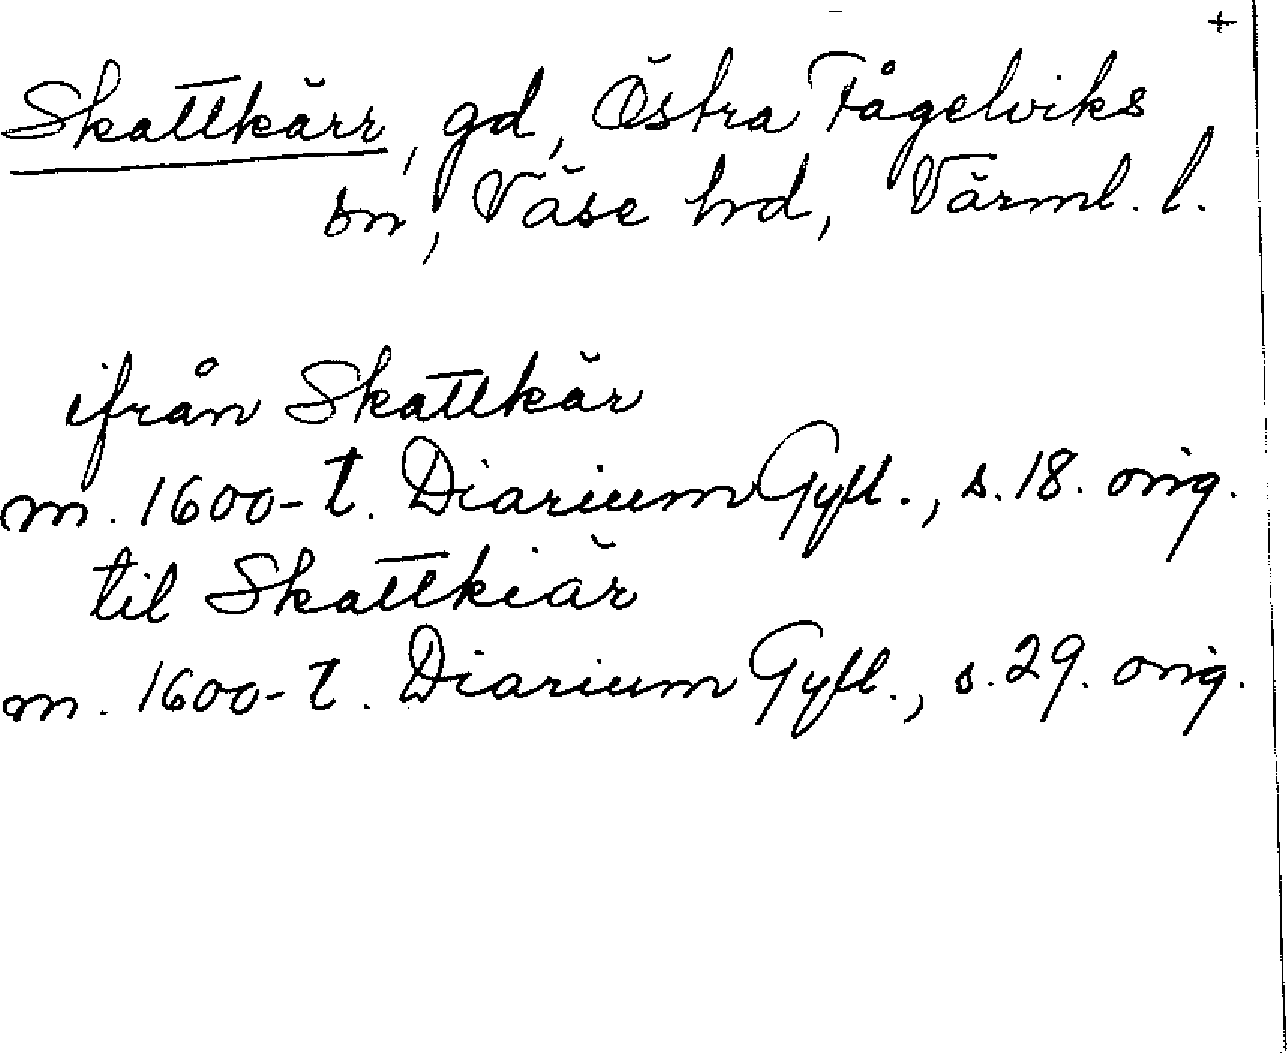 +
Skattkärr, gd, Östra Fågelviks
sn, Väse hd, Värml. l.
ifrån Skattkär
m. 1600-t. Diarium Gyll., s. 18. orig.
til Skattkiär
m. 1600-t. Diarium Gyll., s. 29. orig.